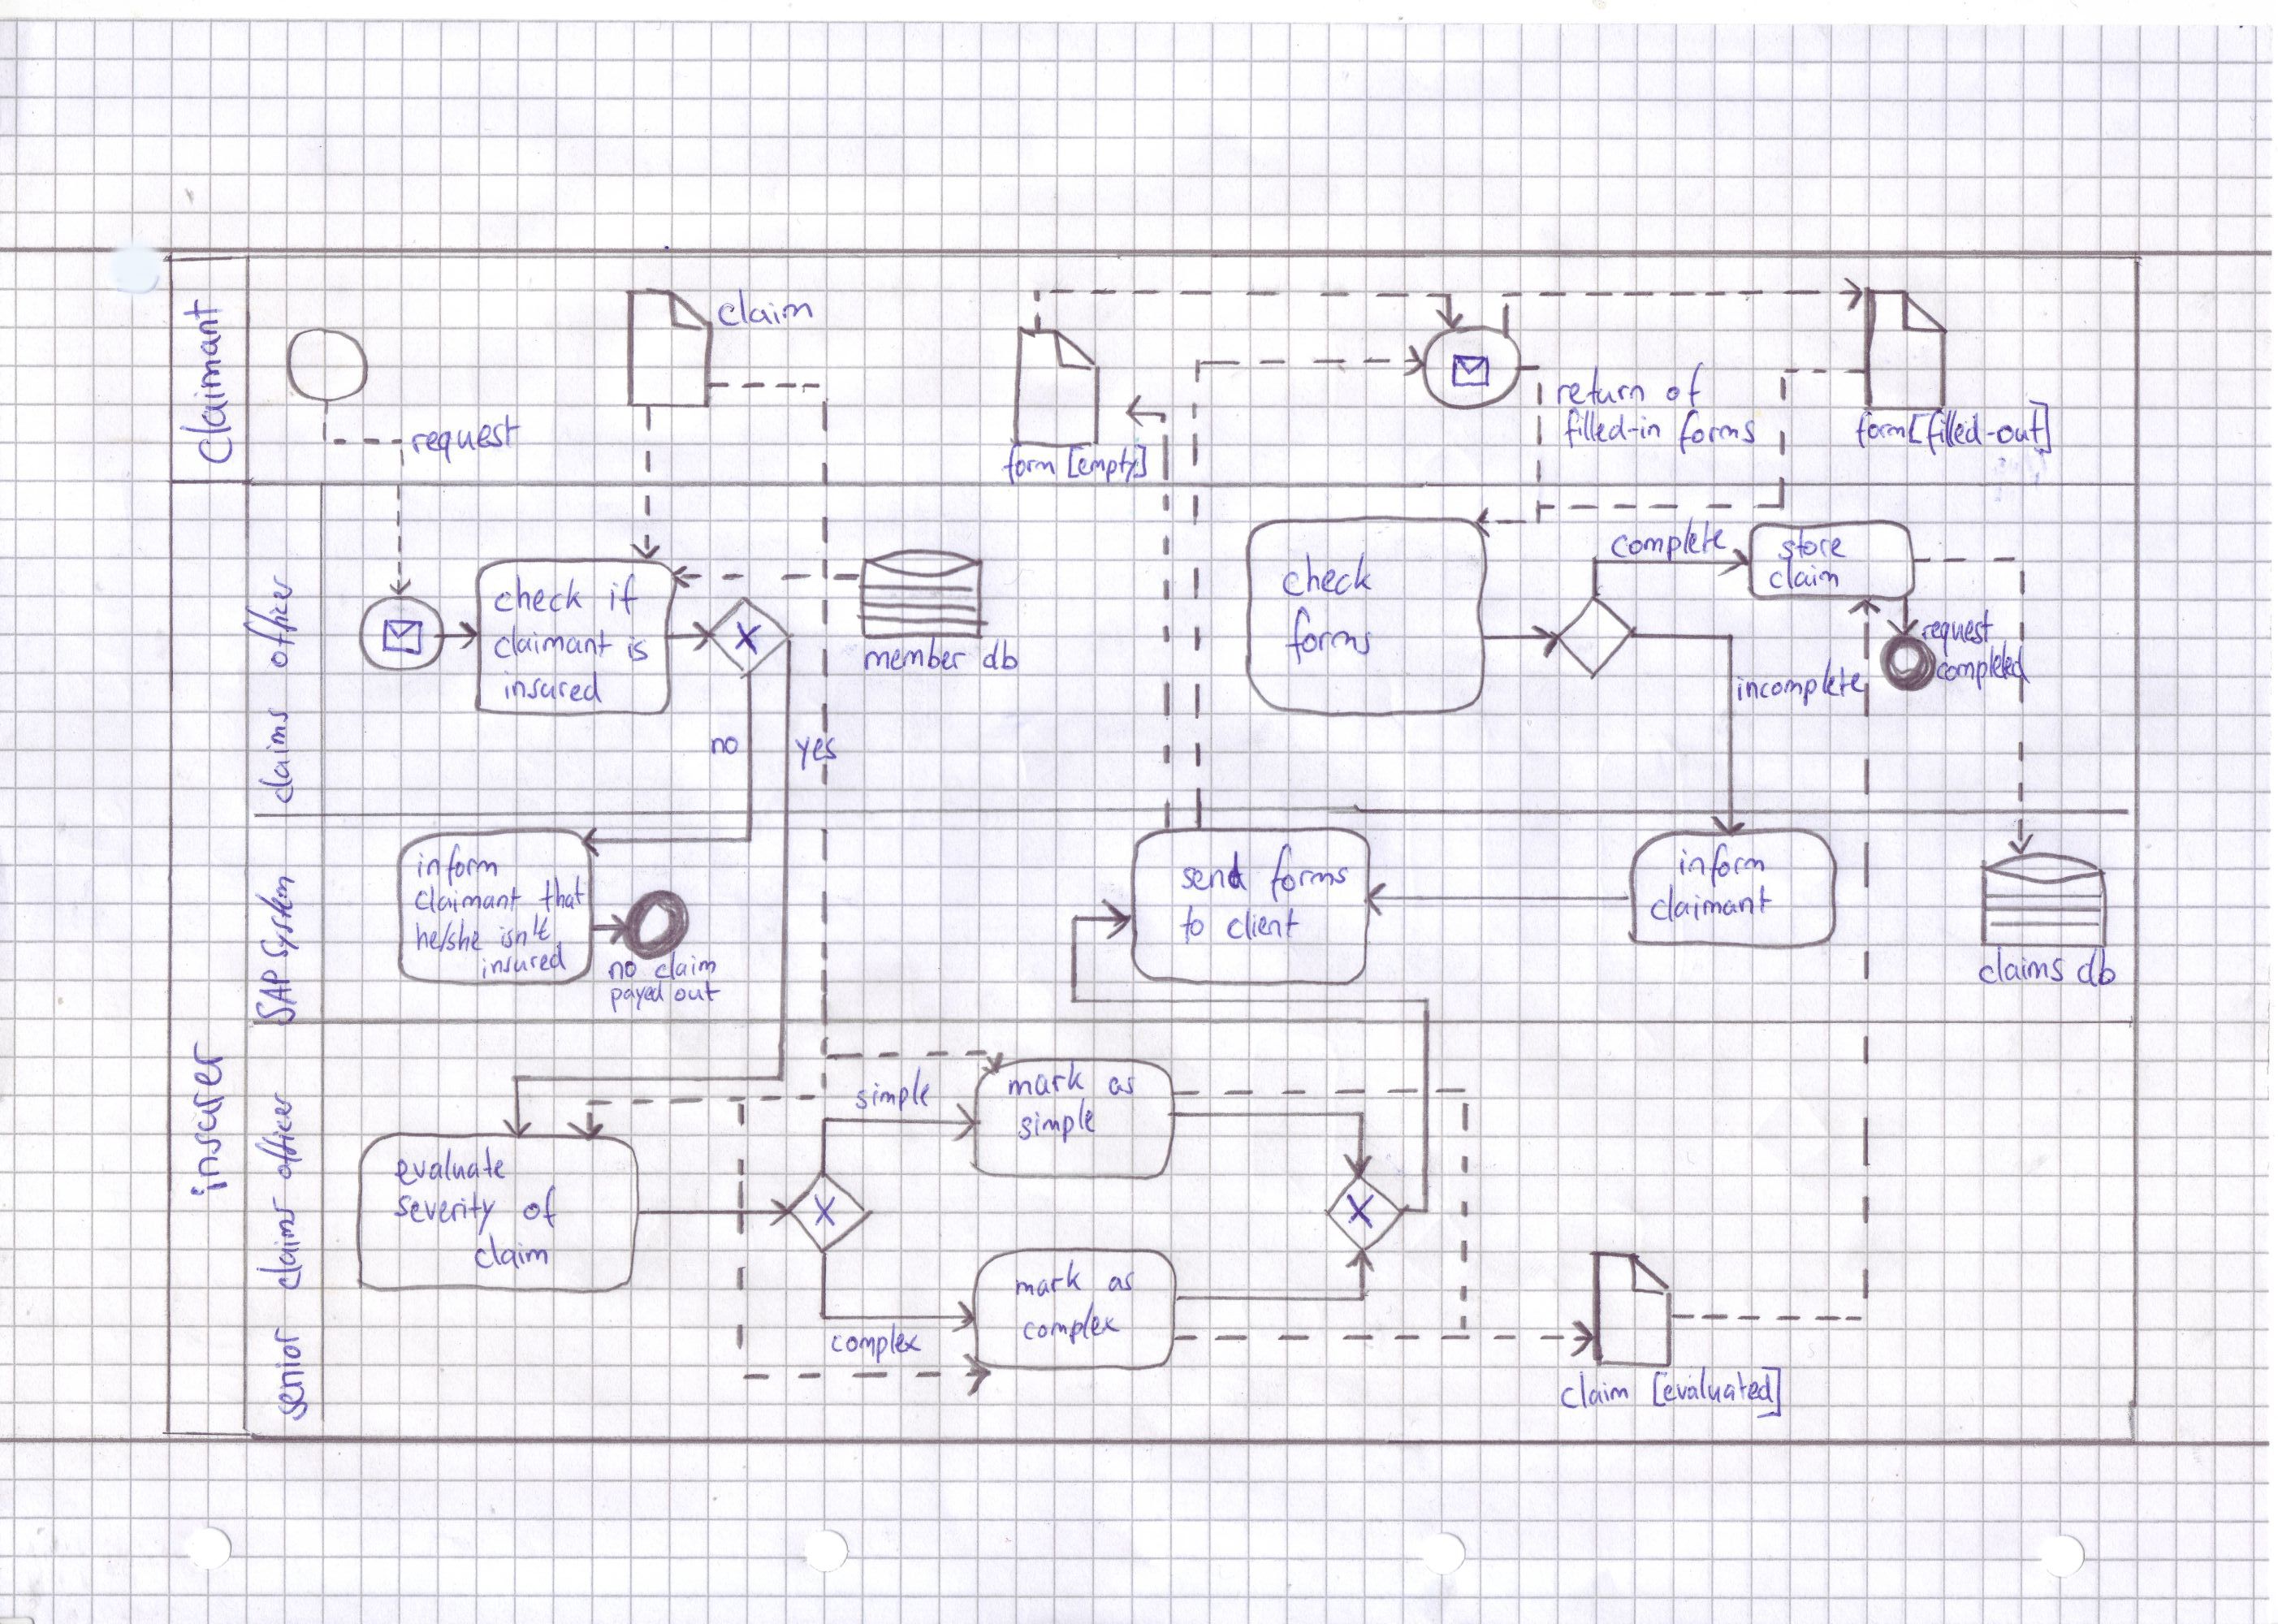 claimant
claim
request
form [empty]
return of
filled-in forms
form [filled-out]
insurer
claims officer
check if
claimant is
insured
X
member db
no
yes
check
forms
complete
incomplete
store
claim
request
completed
SAP System
inform
claimant that
he/she isn't
insured
no claim
payed out
send forms
to client
inform
claimant
claims db
senior claims officer
evaluate
severity of
claim
X
simple
complex
mark as
simple
mark as
complex
X
claim [evaluated]